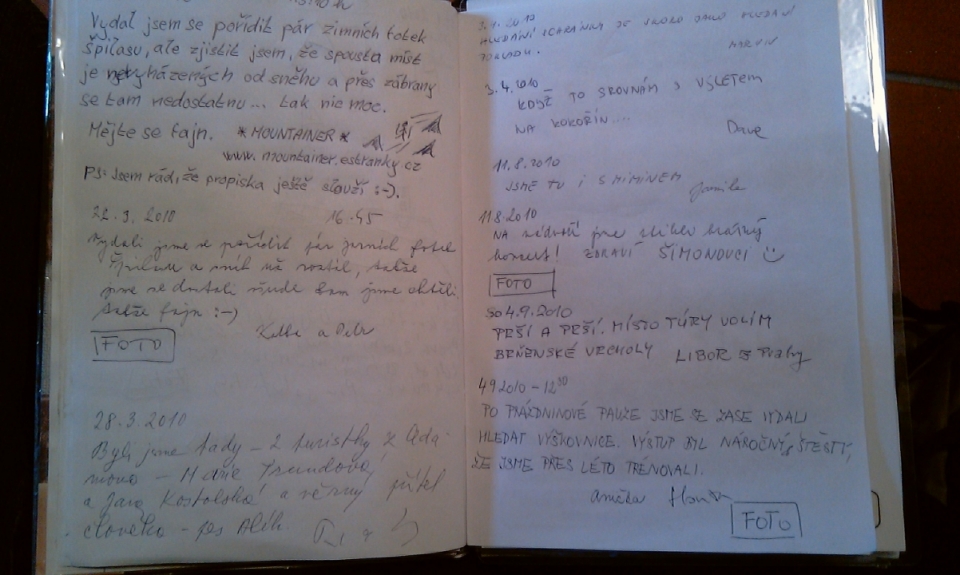 Vydal jsem se pořídit pár zimních fotek
Špilasu, ale zjistil jsem, že spousta míst
je nevyházených od sněhu a přes zábrany
se tam nedostatnu... tak nic moc.
Mějte se fajn. * MOUNTAINER *
www.mountainer.estranky.cz
PS: Jsem rád, že propiska ještě slouží :-).
22.3. 2010 16.45
Vydali jsme se pořídit pár jarních fotek
Špilasu a sníh už roztál, takže
jsme se dostali všude kam jsme chtěli,
takže fajn :-)
a Petr
FOTO
28.3.2010
Byli jsme tady - 2 turistky z Ada-
mova - Marie
a Jana Kostolská a věrný přítel
člověka - pes Alík
3.4.2010
HLEDÁNÍ JE SKORO JAKO HLEDÁNÍ
POKLADU.
3.4.2010
KDYŽ TO SROVNÁM S VÝLETEM
NA KOKOŘÍN....
Dave
11.8.2010
JSME TU I S MIMINEM
Jamila
11.8.2010
NA nádvoří jsme stihli krásný
koncert! ZDRAVÍ ŠIMONOVCI
FOTO
so 4.9.2010
PRŠÍ A PRŠÍ. MÍSTO TÚRY VOLÍM
BRNĚNSKÉ VRCHOLY LIBOR z Prahy
4 9 2010 - 12 30
PO PRÁZDNINOVÉ PAUZE JSME SE ZASE VYDALI
HLEDAT VÝŠKOVNICE. VÝSTUP BYL NÁROČNÝ, ŠTĚSTÍ,
ŽE JSME PŘES LÉTO TRÉNOVALI.
FOTO